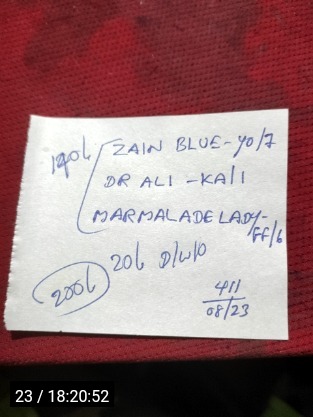 140L ZAIN BLUE-40/7
DR ALI -KA/1
MARMALADE LADY-
FF/6
20L D/W/O
200L
411
08/23
23 / 18:20:52